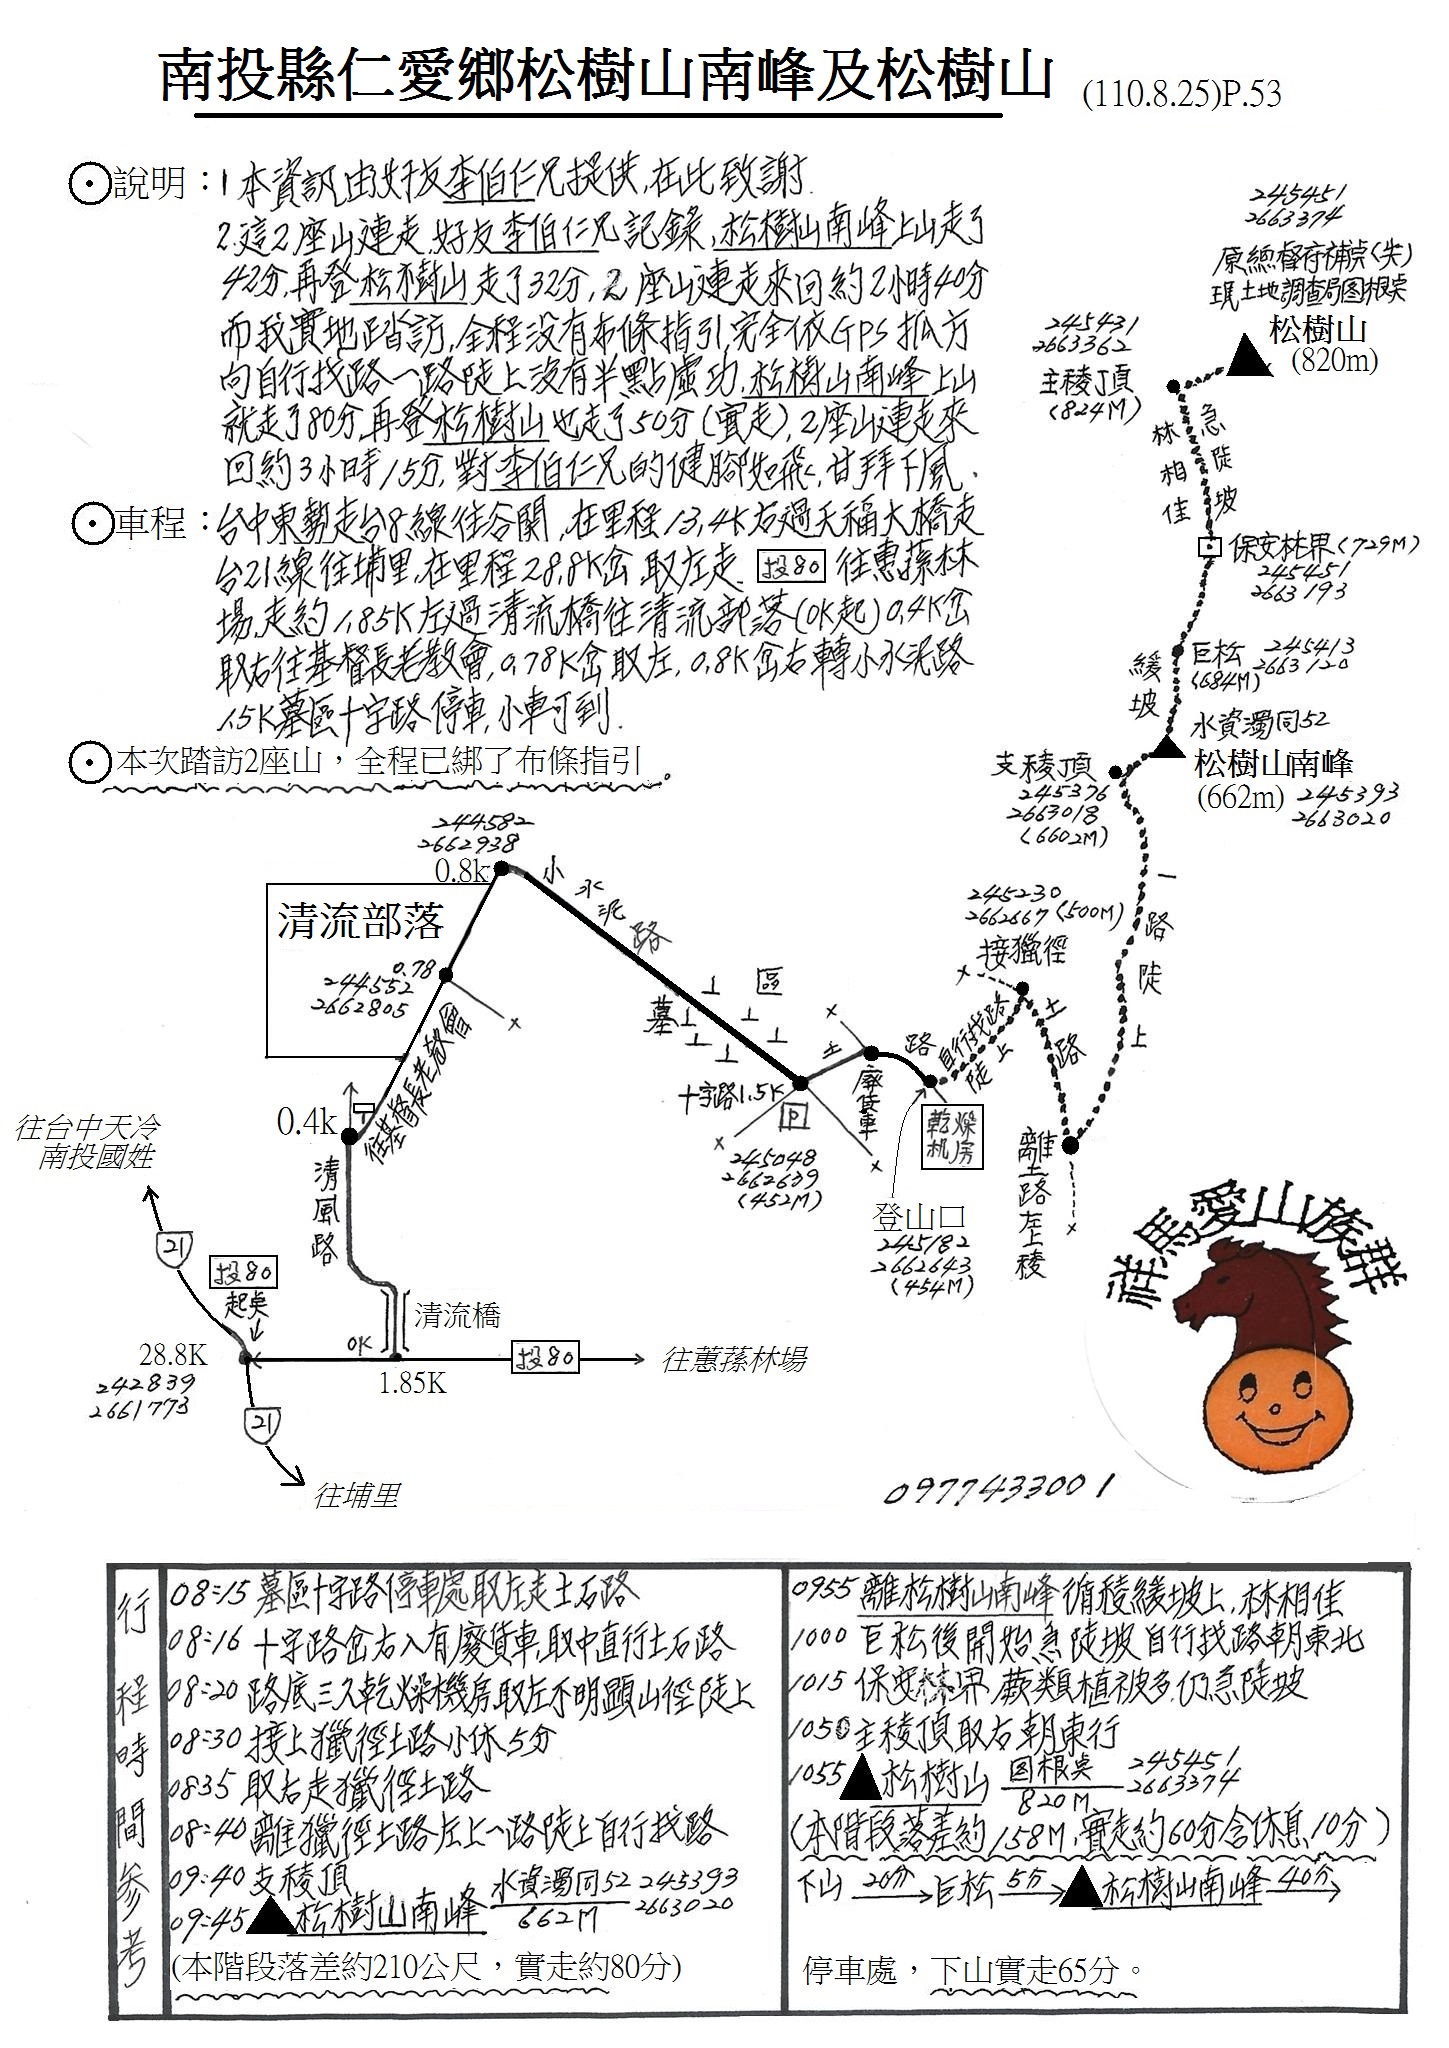 南投縣仁愛鄉松樹山南峰及松樹山 (110.8.25)P.53
⊙說明：1本資訊由好友李伯仁兄提供,在此致謝.
2.這2座山連走,好友李伯仁兄記錄,松樹山南峰上山走了
42分,再登松樹山走了32分,2座山連走來回約2小時40分
而我實地踏訪,全程沒有布條指引,完全依GPS抓方
向自行找路一路陡上沒有半點虛功,松樹山南峰上山
就走了80分,再登松樹山也走了50分(實走),2座山連走來
回約3小時15分,對李伯仁兄的健腳如飛,甘拜下風.
⊙車程：台中東勢走台8線往谷關,在里程13.4K右過天福大橋走
台21線往埔里,在里程28.8K岔取左走 投80 往惠蓀林
場,走約1.85K左過清流橋往清流部落(0K起)0.4K岔
取右往基督長老教會,0.78K岔取左,0.8K岔右轉小水泥路
1.5K墓區十字路停車,小車可到.
⊙本次踏訪2座山，全程已綁了布條指引。
245451
2663374
原總督府補點(失)
現土地調查局圖根點
松樹山
(820m)
245431
2663362
主稜頂
(824M)
林相佳
急陡坡
保安林界(729M)
245451
2663193
緩坡
巨松
(684M)
245413
2663120
水資濁同52
松樹山南峰
(662m)
245393
2663020
支稜頂
245376
2663018
(6602M)
一路陡上
244582
2662938
0.8k
小水泥路
清流部落
0.78
244552
2662805
往基督長老教會
墓區
245230
2662667(500M)
接獵徑
土路
自行找路
陡上
土路
廢貨車
十字路1.5K
P
245048
2662639
(452M)
乾燥机房
登山口
245182
2662643
(454M)
離土路左上稜
0.4k
清風路
往台中天冷
南投國姓
21
投80
起點
清流橋
28.8K
242839
2661773
0K
1.85K
投80
往蕙蓀林場
21
往埔里
祥馬愛山族群
0977433001
行程時間參考
08:15 墓區十字路停車處取左走土石路
08:16 十字路岔右入有廢貨車,取中直行土石路
08:20 路底三久乾燥機房取左不明顯山徑陡上
08:30 接上獵徑土路小休5分
0835 取右走獵徑土路
08:40 離獵徑土路左上一路陡上自行找路
09:40 支稜頂
09:45 ▲松樹山南峰 水資濁同52 662M 245393 2663020
(本階段落差約210公尺，實走約80分)
0955 離松樹山南峰循稜緩坡上,林相佳
1000 巨松後開始急陡坡自行找路朝東北
1015 保安林界,蕨類植被多,仍急陡坡
1050 主稜頂取右朝東行
1055 ▲松樹山 图根點 820M 245451 2663374
(本階段落差約158M,實走約60分含休息10分)
下山 20分 巨松 5分 ▲松樹山南峰 40分
停車處，下山實走65分。